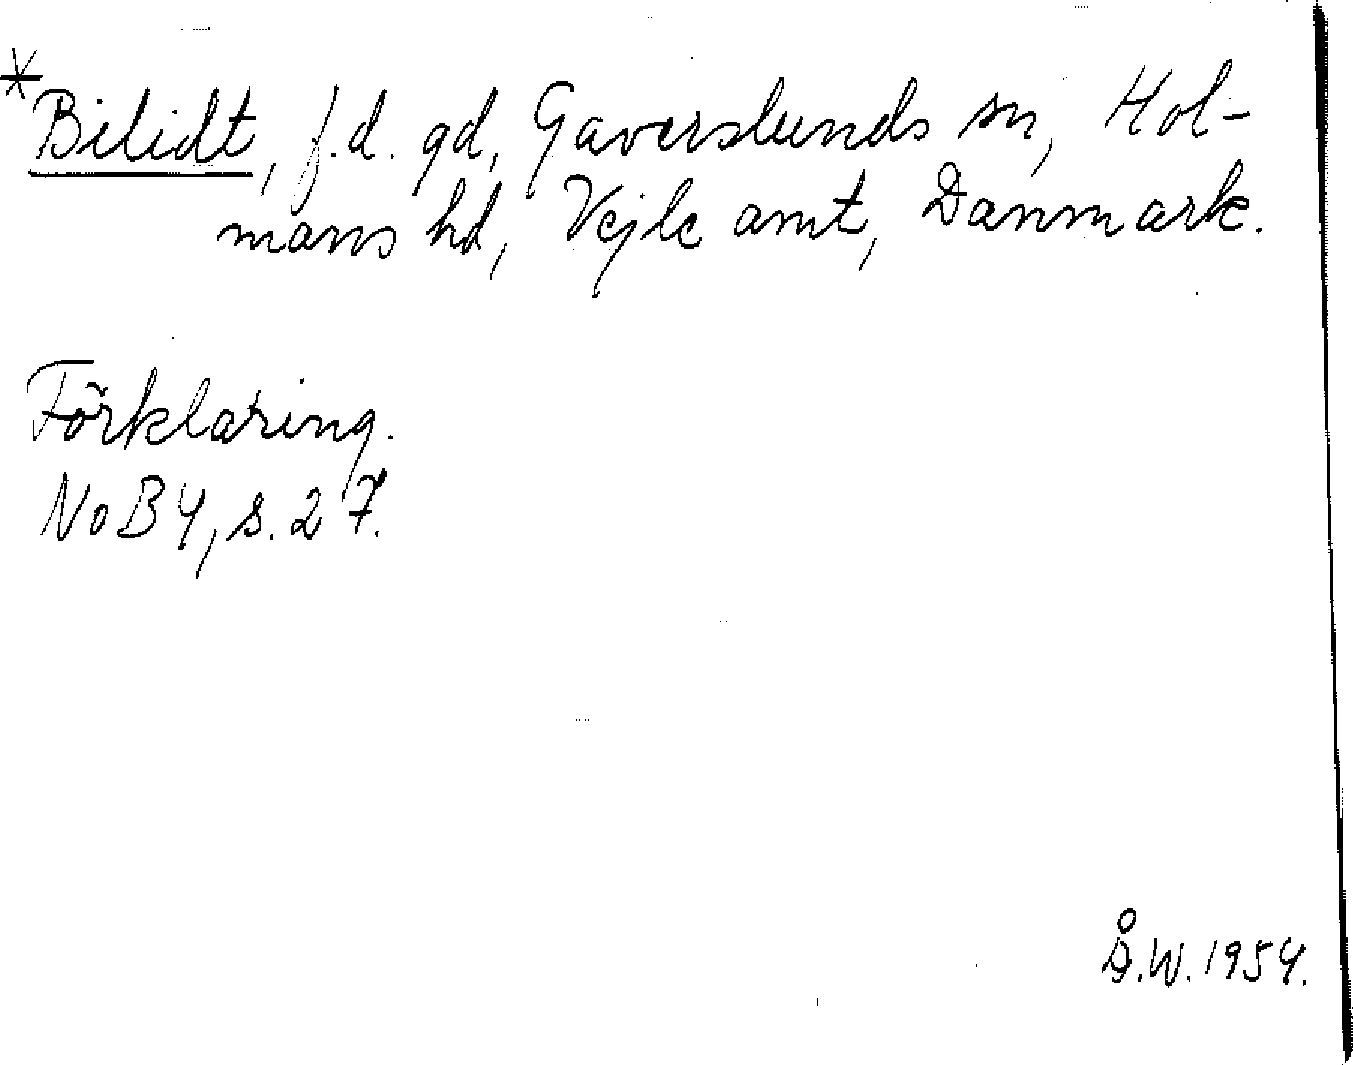 *Bilidt, f.d. gd, Gaverslunds sn, Hol-
mans hd, Vejle amt, Danmark.
Förklaring.
NoB 4, s. 27.
Å.W. 1954.